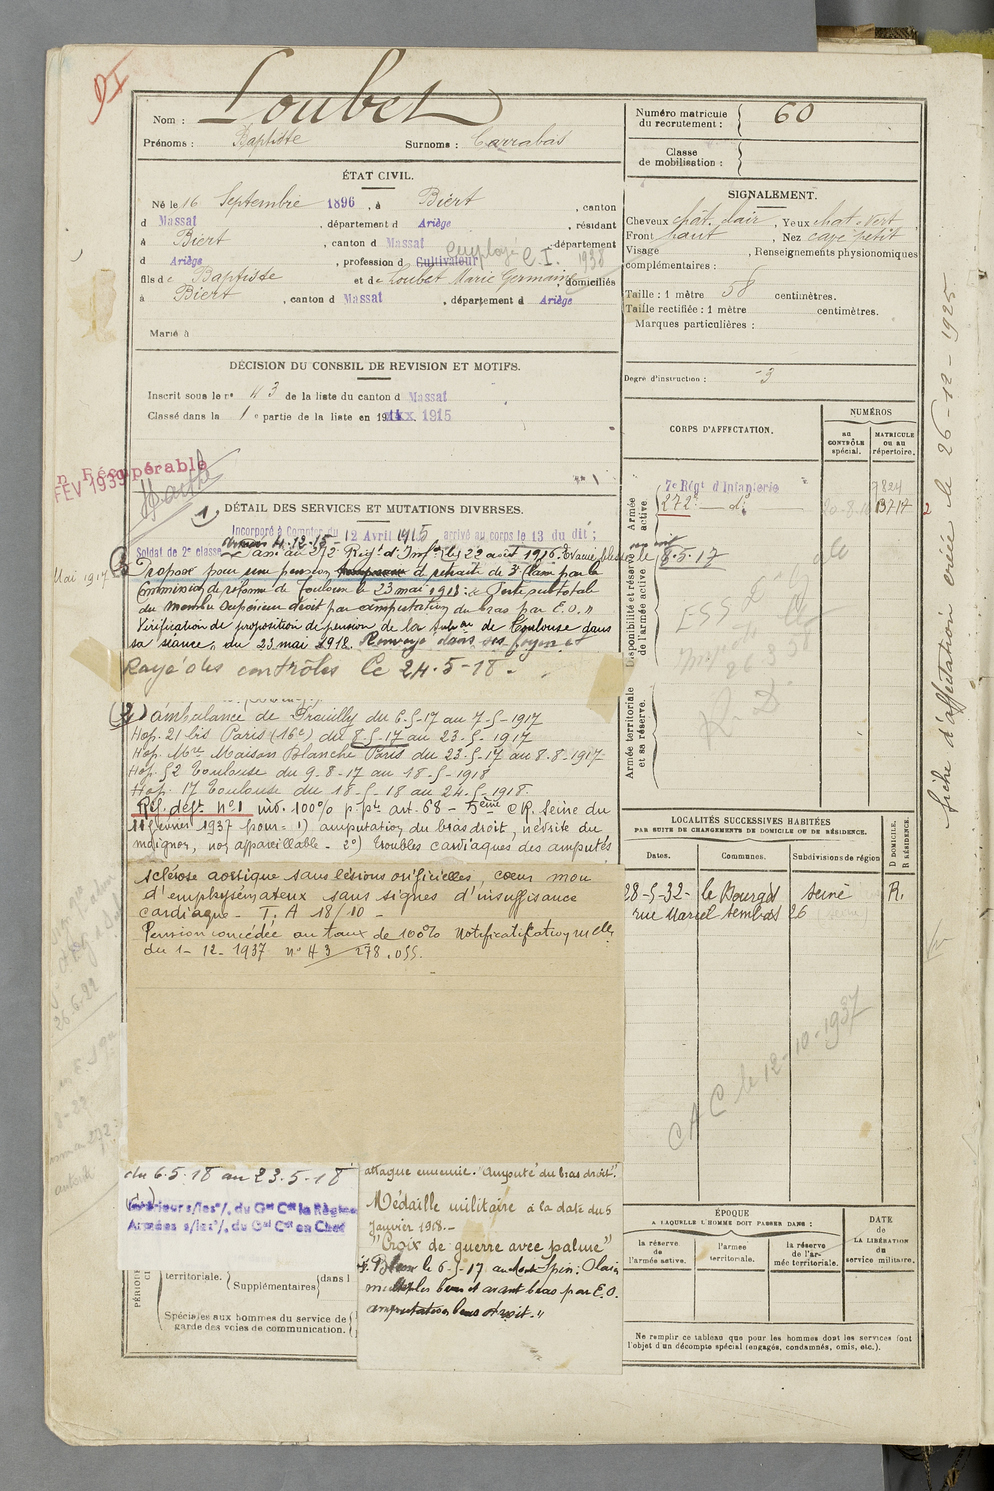 Nom : Loubet
Prénoms : Baptiste Surnoms : Carrabas
Numéro matricule du recrutement : 60
Classe de mobilisation :
ÉTAT CIVIL.
Né le 16 Septembre 1896, à Biert, canton
d Massat, département d Ariège, résidant
à Biert, canton d Massat, département
d Ariège, profession d Cultivateur employé C. I. 1938
fils de Baptiste et de Loubet Marie Germaine, domiciliés
à Biert, canton d Massat, département d Ariège
Marié à
SIGNALEMENT.
Cheveux chât. clair, Yeux chat. vert
Front haut, Nez cavé petit
Visage , Renseignements physionomiques
complémentaires :
Taille : 1 mètre 58 centimètres.
Taille rectifiée : 1 mètre centimètres.
Marques particulières :
Degré d'instruction : 3
DÉCISION DU CONSEIL DE REVISION ET MOTIFS.
Inscrit sous le nº 43 de la liste du canton d Massat
Classé dans la 1 e partie de la liste en 1915
n Récupérable
FEV 1939
CORPS D'AFFECTATION.
NUMÉROS
au CONTRÔLE spécial.
MATRICULE ou au répertoire.
Armée active.
7e Régt d'Infanterie 9824
272e dº 13717
Disponibilité et réserve de l'armée active
8-5-17
Armée territoriale et sa réserve.
fiche d'affectation créée le 26-12-1925
1) DÉTAIL DES SERVICES ET MUTATIONS DIVERSES.
Incorporé à Compter du 12 Avril 1915, arrivé au corps le 13 du dit ;
Soldat de 2e classe 4.12.15
272 Régt d'Infie le 22 août 1916. Evacué blessé le 8-5-17
Mai 1917
Proposé pour une pension de retraite de 3e Classe par la
Commission de réforme de Toulouse le 23 mai 1918 : Perte subtotale
du membre supérieur droit par amputation du bras par E. O. "
Vérification de proposition de pension de la de Toulouse dans
sa séance, du 23 mai 1918. Renvoyé dans ses foyers et
Rayé des contrôles le 24-5-18.
2) ambulance de Prouilly du 6-5-17 au 7-5-1917
Hop. 21 bis Paris (16e) du 8-5-17 au 23-5-1917
Hop. Mre Maison Blanche Paris du 23-5-17 au 8-8-1917
Hop. 52 Toulouse du 9-8-17 au 18-5-1918
Hop. 17 Toulouse du 18-5-18 au 24-5-1918.
Réf. déf. nº1 inv. 100% p. pte art. 68 - 5ème C.R. Seine du
11 février 1937 pour : 1) amputation du bras droit, névrite du
moignon, non appareillable - 2º) troubles cardiaques des amputés
sclérose aortique sans lésions orificielles, cœur mou
d'emphysémateux sans signes d'insuffisance
cardiaque - T. A 18/10 -
Pension concédée au taux de 100% Notification
du 1-12-1937 nº 43 278.055.
LOCALITÉS SUCCESSIVES HABITÉES
PAR SUITE DE CHANGEMENTS DE DOMICILE OU DE RÉSIDENCE.
Dates. Communes. Subdivisions de région D DOMICILE, R RÉSIDENCE.
28-5-32- le Bourget Seine R.
rue Marcel Sembat 26
C A C le 12-10-1937
26-6-22
du 6.5.18 au 23.5.18
Intérieur s/les o/. du Gal Ct la Région
Armées s/les o/. du Gal Ct en Chef
attaque ennemie. "Amputé du bras droit".
Médaille militaire à la date du 5
Janvier 1918.-
"Croix de guerre avec palme"
Blessé le 6-5-17 au : Plaies
multiples bras et avant bras par E. O.
amputation bras droit. "
territoriale. Supplémentaires dans l
Spéciales aux hommes du service de
garde des voies de communication.
ÉPOQUE
A LAQUELLE L'HOMME DOIT PASSER DANS :
la réserve de l'armée active.
l'armée territoriale.
la réserve de l'armée territoriale.
DATE de LA LIBÉRATION du service militaire.
Ne remplir ce tableau que pour les hommes dont les services font
l'objet d'un décompte spécial (engagés, condamnés, omis, etc.).